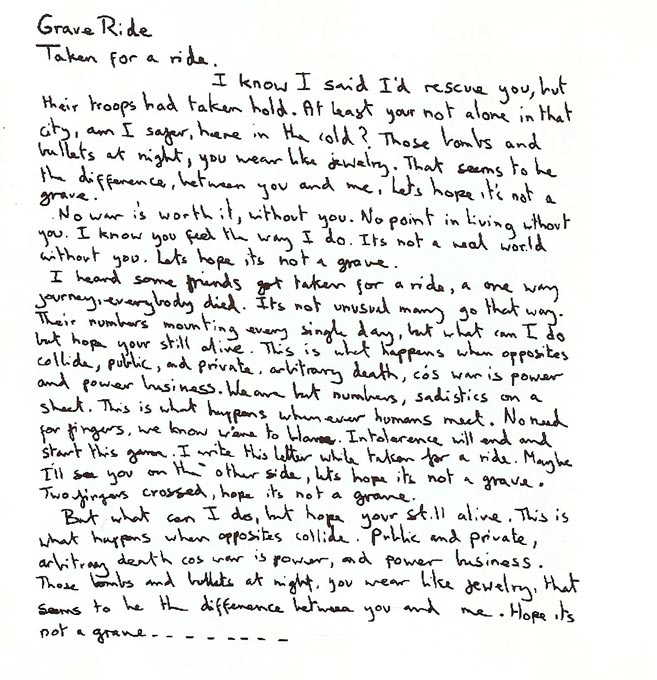 Grave Ride
Taken for a ride.
I know I said I'd rescue you, but
their troops had taken hold. At least your not alone in that
city, am I safer, here in the cold? Those bombs and
bullets at night, you wear like jewelry. That seems to be
the difference, between you and me, lets hope it's not a
grave.
No war is worth it, without you. No point in living wthout
you. I know you feel the way I do. Its not a real world
without you. Lets hope its not a grave.
I heard some friends got taken for a ride, a one way
journey, everybody died. Its not unusual many go that way.
Their numbers mounting every single day, but what can I do
but hope your still alive. This is what happens when opposites
collide, public, and private, arbitrary death, cos war is power
and power business. We are but numbers, sadistics on a
sheet. This is what happens whenever humans meet. No need
for fingers, we know were to blame. Intolerence will end and
start this game. I write this letter while taken for a ride. Maybe
I'll see you on the other side, lets hope its not a grave.
Two fingers crossed, hope its not a grave.
But what can I do, but hope your still alive. This is
what happens when opposites collide. Public and private,
arbitray death cos war is power, and power business.
Those bombs and bullets at night, you wear like jewelry, that
seems to be the difference between you and me. Hope its
not a grave - - - - - - - -